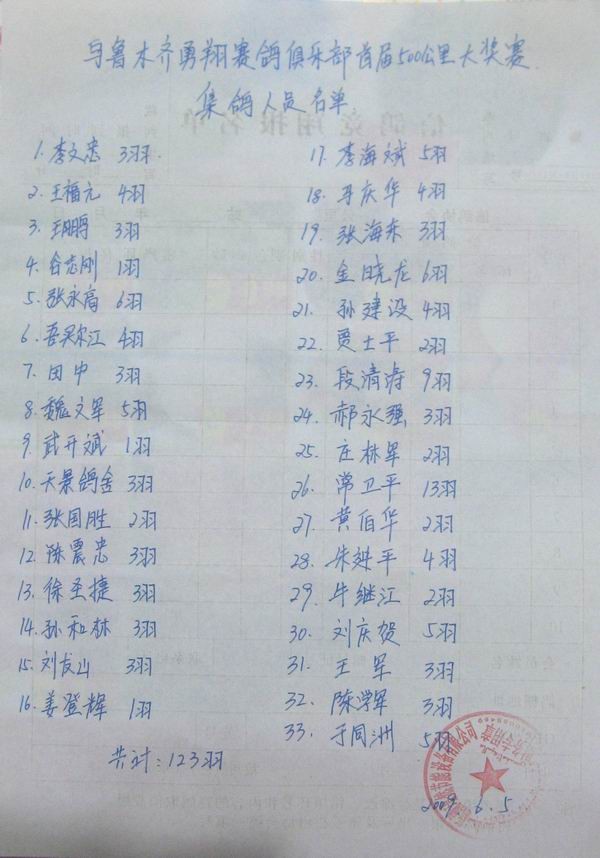 乌鲁木齐勇翔赛鸽俱乐部首届500公里大奖赛
集鸽人员名单
1. 李文忠 3羽
2. 王福元 4羽
3. 王鹏 3羽
4. 谷志刚 1羽
5. 张永高 6羽
6. 吾买尔江 4羽
7. 田中 3羽
8. 魏文军 5羽
9. 武开斌 1羽
10. 天景鸽舍 3羽
11. 张国胜 2羽
12. 陈震忠 3羽
13. 徐圣捷 3羽
14. 孙和林 3羽
15. 刘友山 3羽
16. 姜登辉 1羽
共计:123羽
17. 李海斌 5羽
18. 马庆华 4羽
19. 张海东 3羽
20. 金晓龙 6羽
21. 孙建设 4羽
22. 贾士平 2羽
23. 段清涛 9羽
24. 郝永强 3羽
25. 庄林军 2羽
26. 常卫平 13羽
27. 黄伯华 2羽
28. 朱进平 4羽
29. 牛继江 2羽
30. 刘庆贺 5羽
31. 王军 3羽
32. 陈学军 3羽
33. 于同洲 5羽
2009. 6. 5